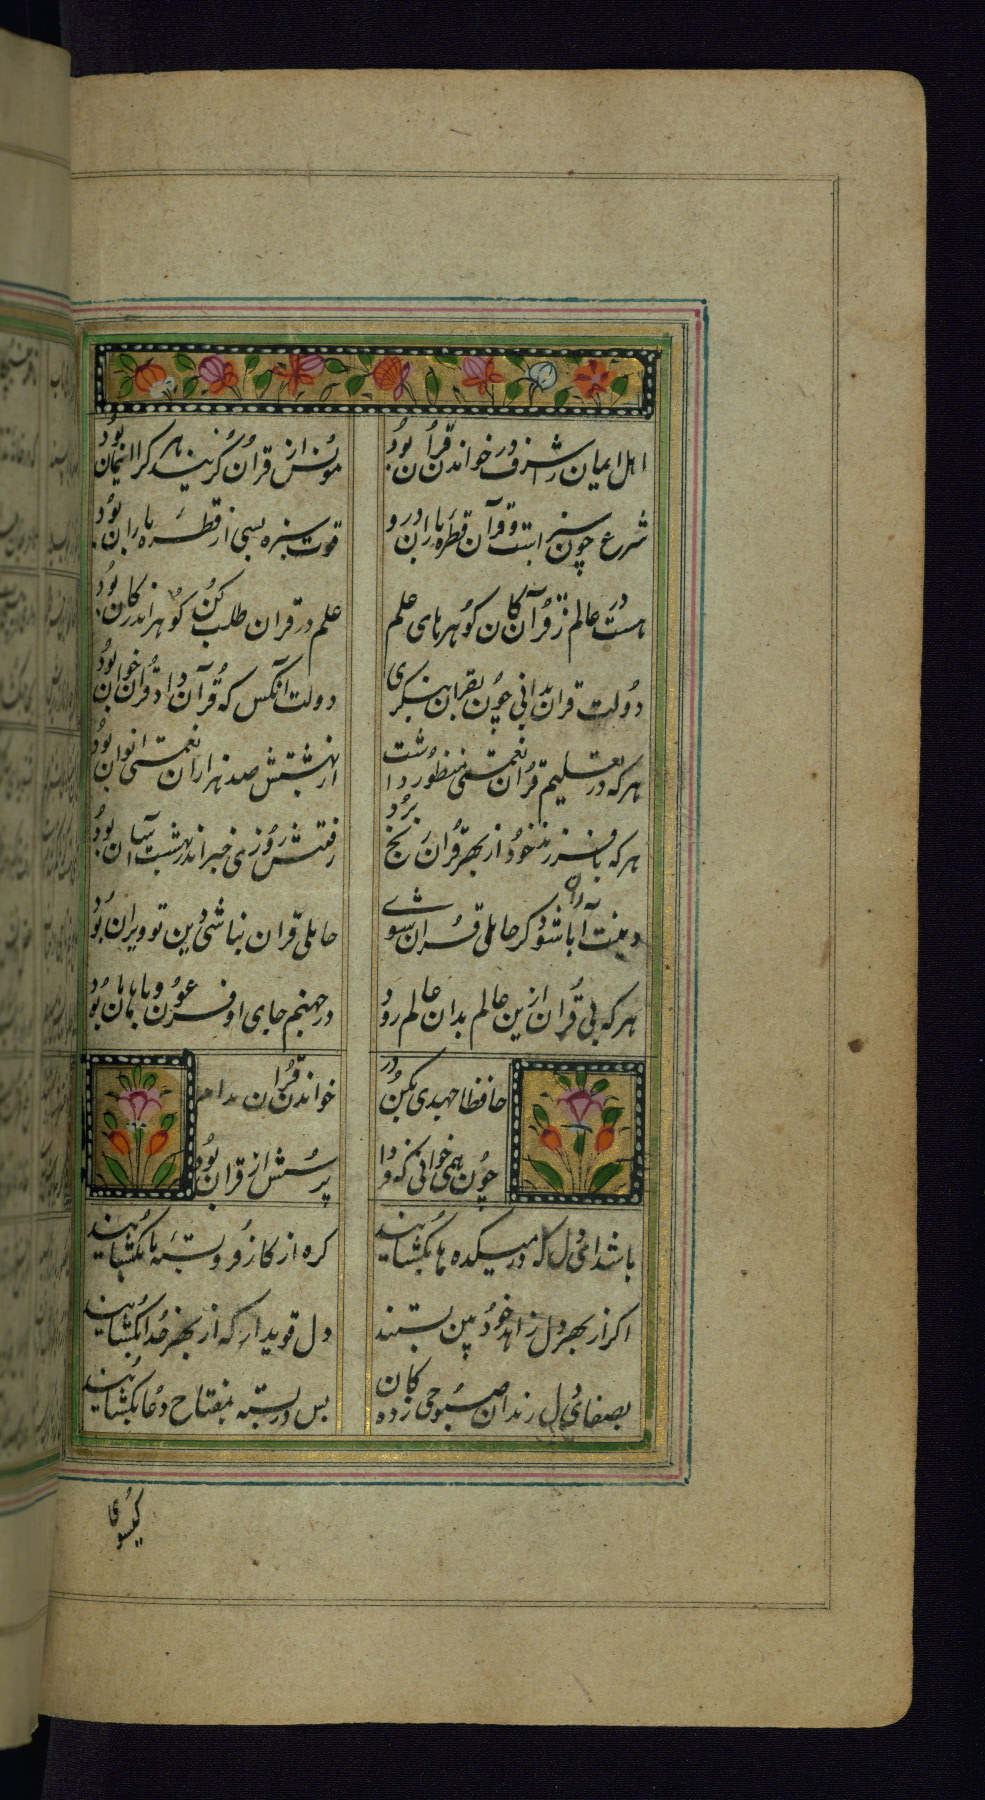 اهل ایمان را شرف در خواندن قرآن بود
مونس از قرآن گزیند هر کرا ایمان بود
شرع چون سبزاست و قرآن قطره باران درو
قوت سبزه بسی از قطره باران بود
هست در عالم ز قرآن کان گوهرهای علم
علم در قرآن طلب کن گوهر اندر کان بود
دولت قرآن بدانی چون بقرآن بنگری
دولت آنکس که قرآن داد قرآن خوان بود
هر که در تعلیم قرآن نعمتی منظور داشت
از بهشتش صد هزاران نعمتی الوان بود
هر که با فرزند خود از بهر قرآن رنج برد
رفتنش روزی خبر اندر بهشت آسان بود
دینت آبا شود گر حامل قرآن شوی
حامل قرآن نباشی دین تو ویران بود
هر که بی قرآن ازین عالم بدان عالم رود
در جهنم جای او فرعون و با هامان بود
حافظا جهدی بکن در
خواندن قرآن مدام
چون همی خوانی نکه دا
پرسش از قرآن بود
باشد ای دل که در میکده ها بگشایند
گره از کار فرو بسته ما بگشایند
اگر از بهر دل زاهد خود بین بستند
دل قوی دار که از بهر خدا بگشایند
بصفای دل رندان صبوحی زدگان
بس در بسته بمفتاح دعا بگشایند
گیسوی